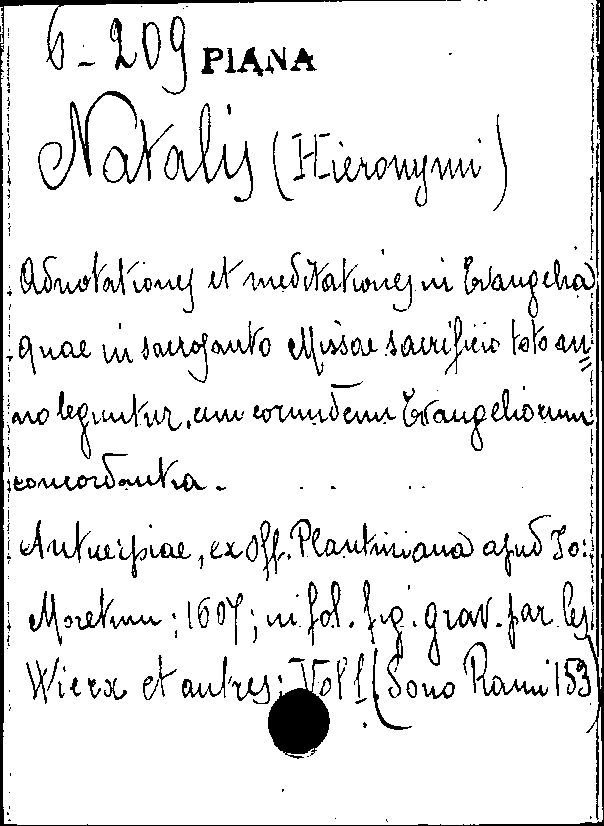 6-209 PIANA
Natalis (Hieronymi)
Adnotationes et meditationes in Evangelia
quae in sacrosanto Missae sacrificio toto an=
no leguntur, cum eorundem Evangeliorum
concordantia.
Antuerpiae, ex Off. Plantiniana apud Jo:
Moretum; 1607; in fol. fig. grav. par les
Wierx et autres; Vol 1 (Sono Rami 153)